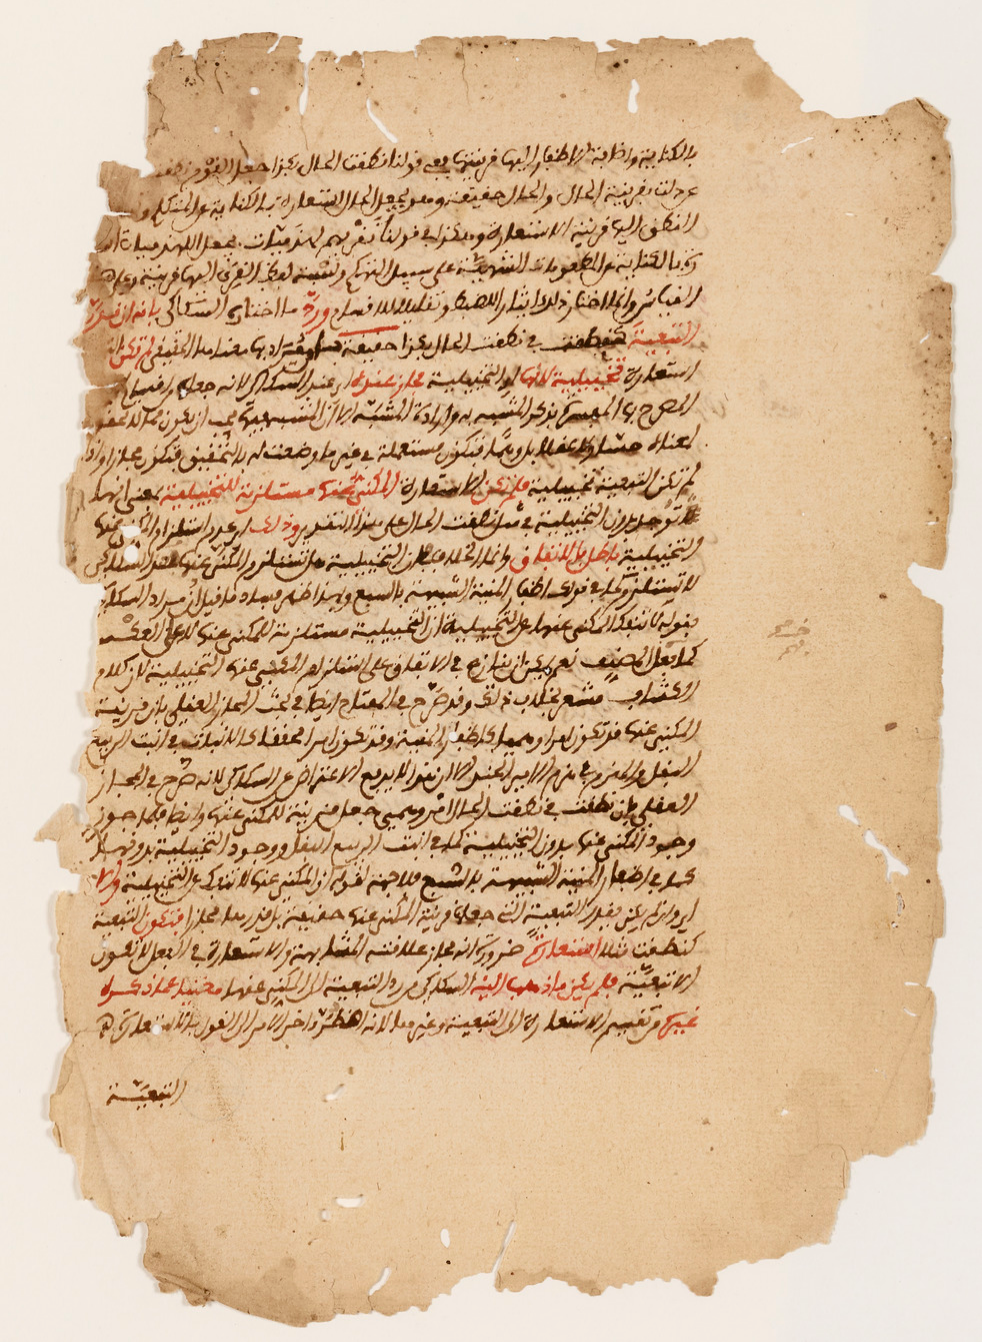 بالكناية واضافة الاظفار اليها قرينتها ففي قولنا نطقت الحال بكذا جعل القوم نطقت
عن دلت بقرينة الحال والحال حقيقة وهو يجعل الحال استعارة بالكناية عن المتكلم
النطق اليه قرينة الاستعارة وهكذا في قولنا نقريهم لهذميات بجعل اللهذميات
بالكناية عن المطعومات الشهية على سبيل التهكم ونسبة لفظ القرى اليها قرينة وعلى
القياس وانما اختار ذلك ايثارا للضبط وتقليلا للاقسام ورد ما اختاره السكاكي بانه ان قدر
التبعية كنطقت في نطقت الحال بكذا حقيقة يراد بها معناها الحقيقي لم تكن
استعارة تخييلية لانها اي التخييلية مجاز عنده اي عند السكاكي لانه جعلها من اقسام
المصرح بها المفسرة بذكر المشبه به وارادة المشبه الا ان المشبه فيها يجب ان يكون مما لا تحقق
لمعناه حسا ولا عقلا بل وهما فتكون مستعملة في غير ما وضعت له بالتحقيق فتكون مجازا واذا
لم تكن التبعية تخييلية فلم تكن الاستعارة المكنى عنها مستلزمة للتخييلية بمعنى انها
لا توجد بدون التخييلية في مثل نطقت الحال على هذا التقدير وذلك اي عدم استلزام المكني عنها
للتخييلية باطل بالاتفاق وانما الخلاف في ان التخييلية هل تستلزم المكنى عنها فعند السكاكي
لا تستلزم كما في قولك اظفار المنية الشبيهة بالسبع وبهذا ظهر فساد ما قيل ان مراد السكاكي
بقوله لا تنفك المكنى عنها عن التخييلية ان التخييلية مستلزمة للمكنى عنها لا على العكس
كما فهمه المصنف نعم يمكن ان ينازع في الاتفاق على استلزام المكنى عنها التخييلية لان كلام
الكشاف مشعر بخلاف ذلك وقد صرح في المفتاح ايضا في بحث المجاز العقلي بان قرينة
المكنى عنها قد تكون امرا وهميا كاظفار المنية وقد تكون امرا محققا كالانبات في انبت الربيع
البقل والهزم في هزم الامير الجند الا ان هذا لا يدفع الاعتراض عن السكاكي لانه صرح في المجاز
العقلي بان نطقت في نطقت الحال امر وهمي جعل قرينة للمكنى عنها وايضا فلما جوز
وجود المكنى عنها بدون التخييلية كما في انبت الربيع البقل ووجود التخييلية بدونها
كما في اظفار المنية الشبيهة بالسبع فلا جهة لقوله ان المكنى عنها لا تنفك عن التخييلية والا
اي وان لم يكن يقدر التبعية التي جعلها قرينة المكنى عنها حقيقة بل قدرها مجازا فتكون التبعية
كنطقت مثلا استعارة ضرورة انه مجاز علاقته المشابهة والاستعارة في الفعل لا تكون
الا تبعية فلم يكن ما ذهب اليه السكاكي من رد التبعية الى المكنى عنها مغنيا عما ذكره
غيره من تقسيم الاستعارة الى التبعية وغيرها لانه اضطر اخر الامر الى القول بالاستعارة
التبعية